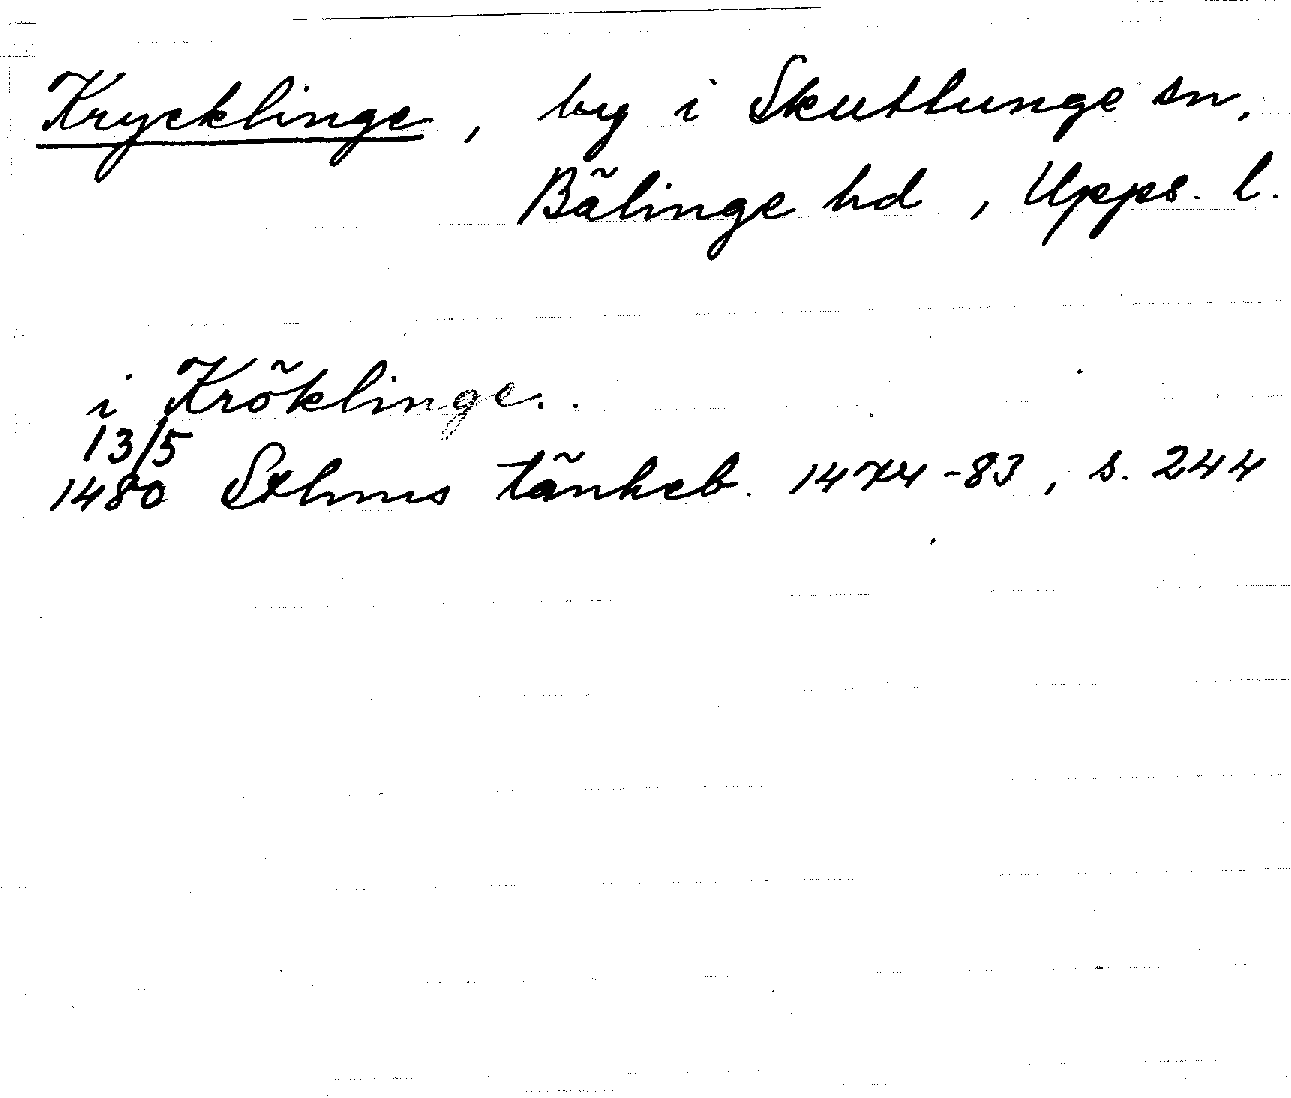 Krycklinge, by i Skuttunge sn,
Bälinge hd, Upps. l.
i Kröklinge.
13/5
1480 Sthms tänkeb. 1474-83, s. 244